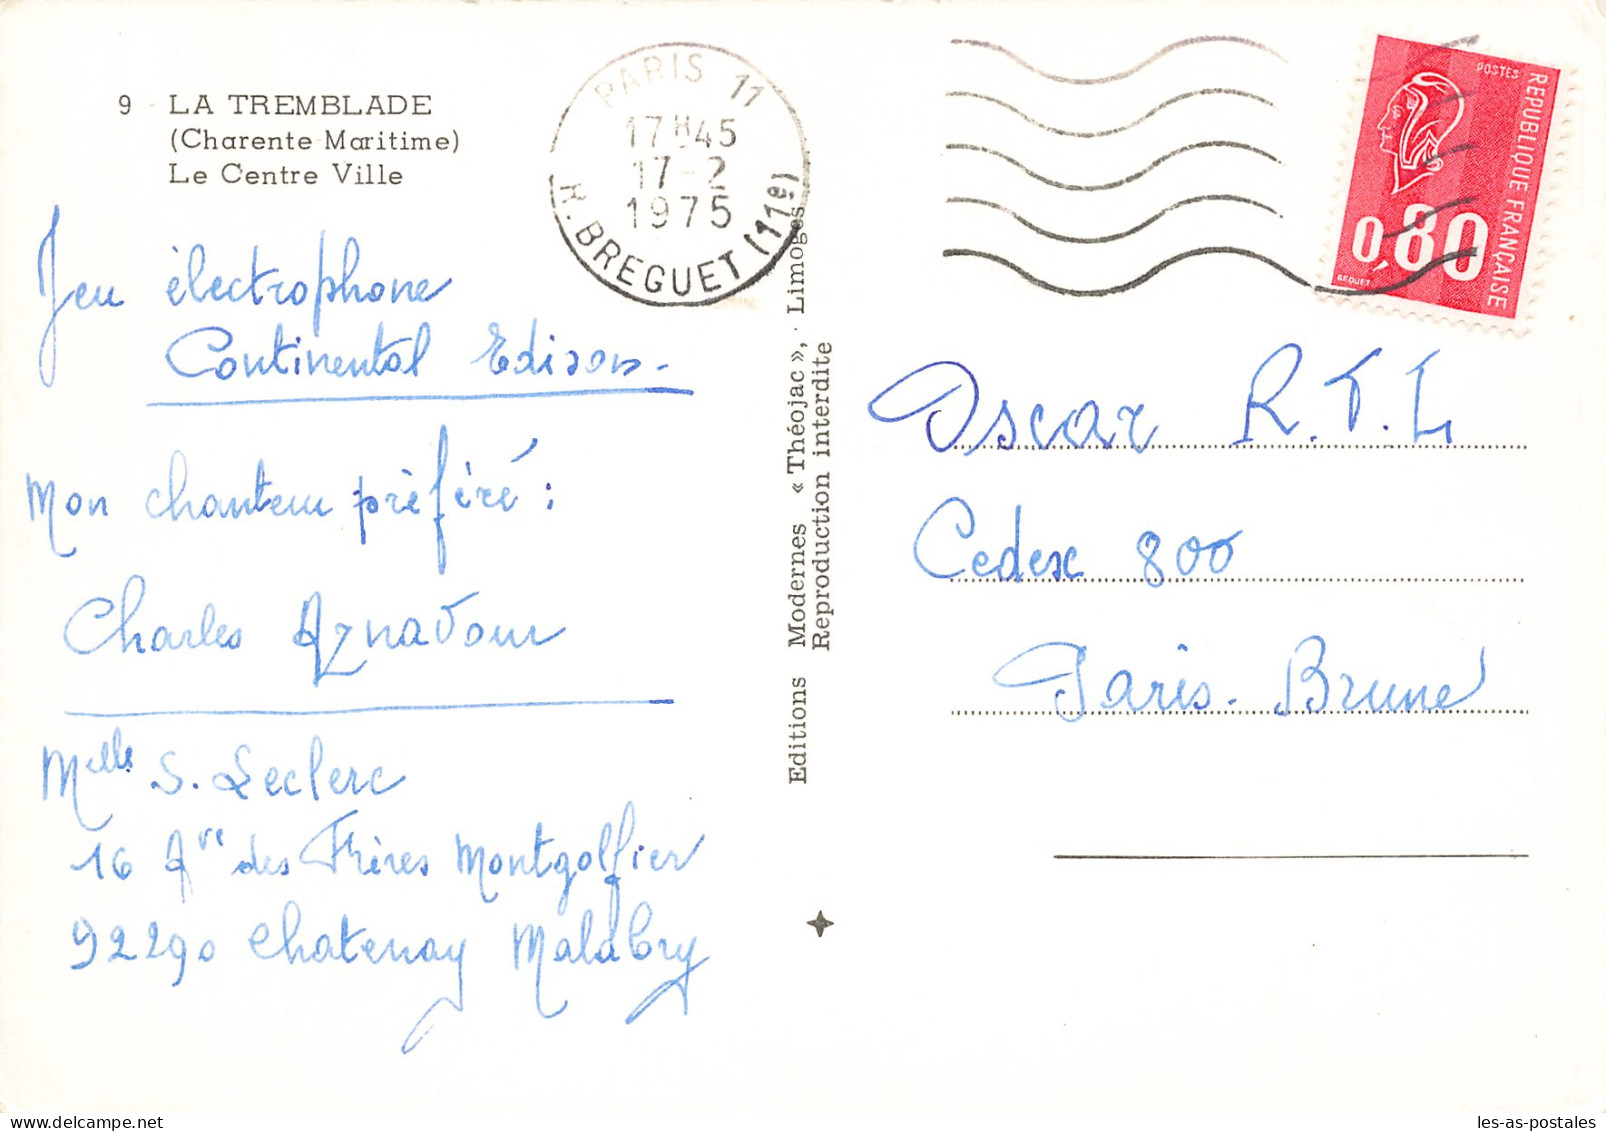 9 - LA TREMBLADE
(Charente Maritime)
Le Centre Ville
PARIS 11
17H45
17-2
1975
R. BREGUET (11e)
POSTES
REPUBLIQUE FRANÇAISE
0,80
BEQUET
Jeu électrophone
Continental Edison.
Mon chanteur préféré :
Charles Aznavour
Melle S. Leclerc
16 Ave des Frères Montgolfier
92290 Chatenay Malabry
Editions Modernes « Théojac », Limoges
Reproduction interdite
Oscar R.T.L
Cedex 800
Paris-Brune
les-as-postales